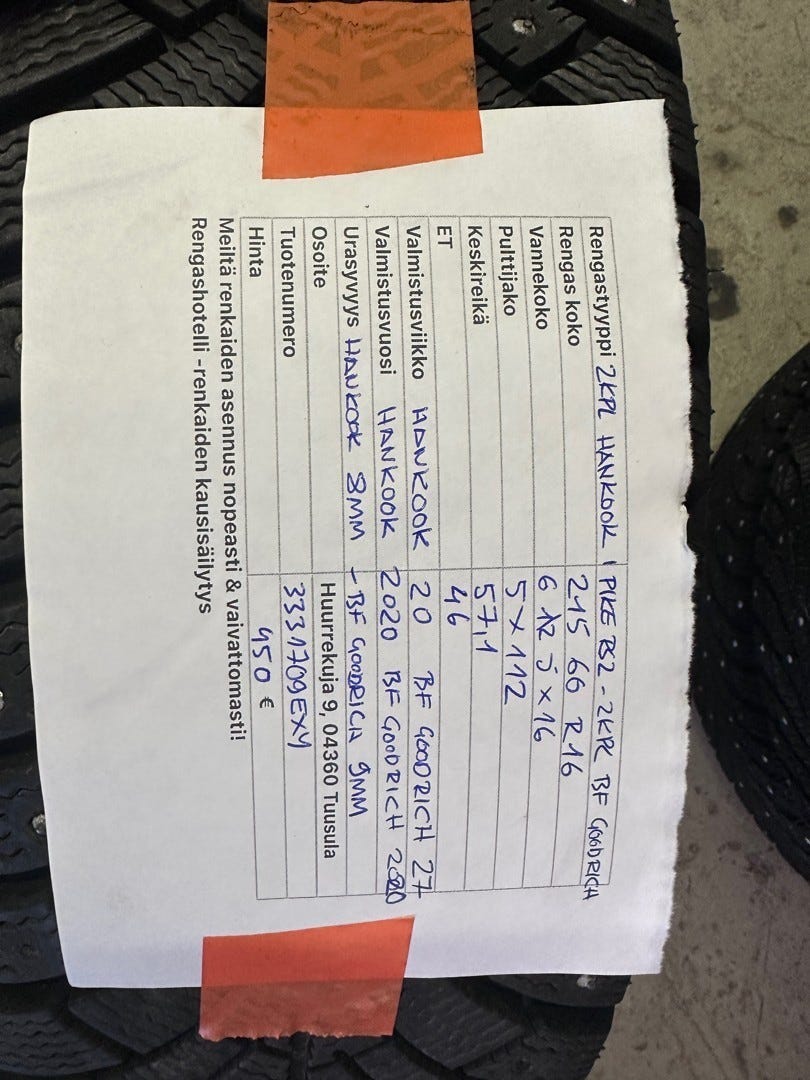 Rengastyyppi 2KPL HANKOOK I PIKE RS2 - 2KPL BF GOODRICH
Rengas koko 215 60 R16
Vannekoko 6 1/2 J x 16
Pulttijako 5 x 112
Keskireikä 57,1
ET 46
Valmistusviikko HANKOOK 20 BF GOODRICH 27
Valmistusvuosi HANKOOK 2020 BF GOODRICH 2020
Urasyvyys HANKOOK 8MM - BF GOODRICH 9MM
Osoite Huurrekuja 9, 04360 Tuusula
Tuotenumero 3331709EXY
Hinta 450 €
Meiltä renkaiden asennus nopeasti & vaivattomasti!
Rengashotelli -renkaiden kausisäilytys